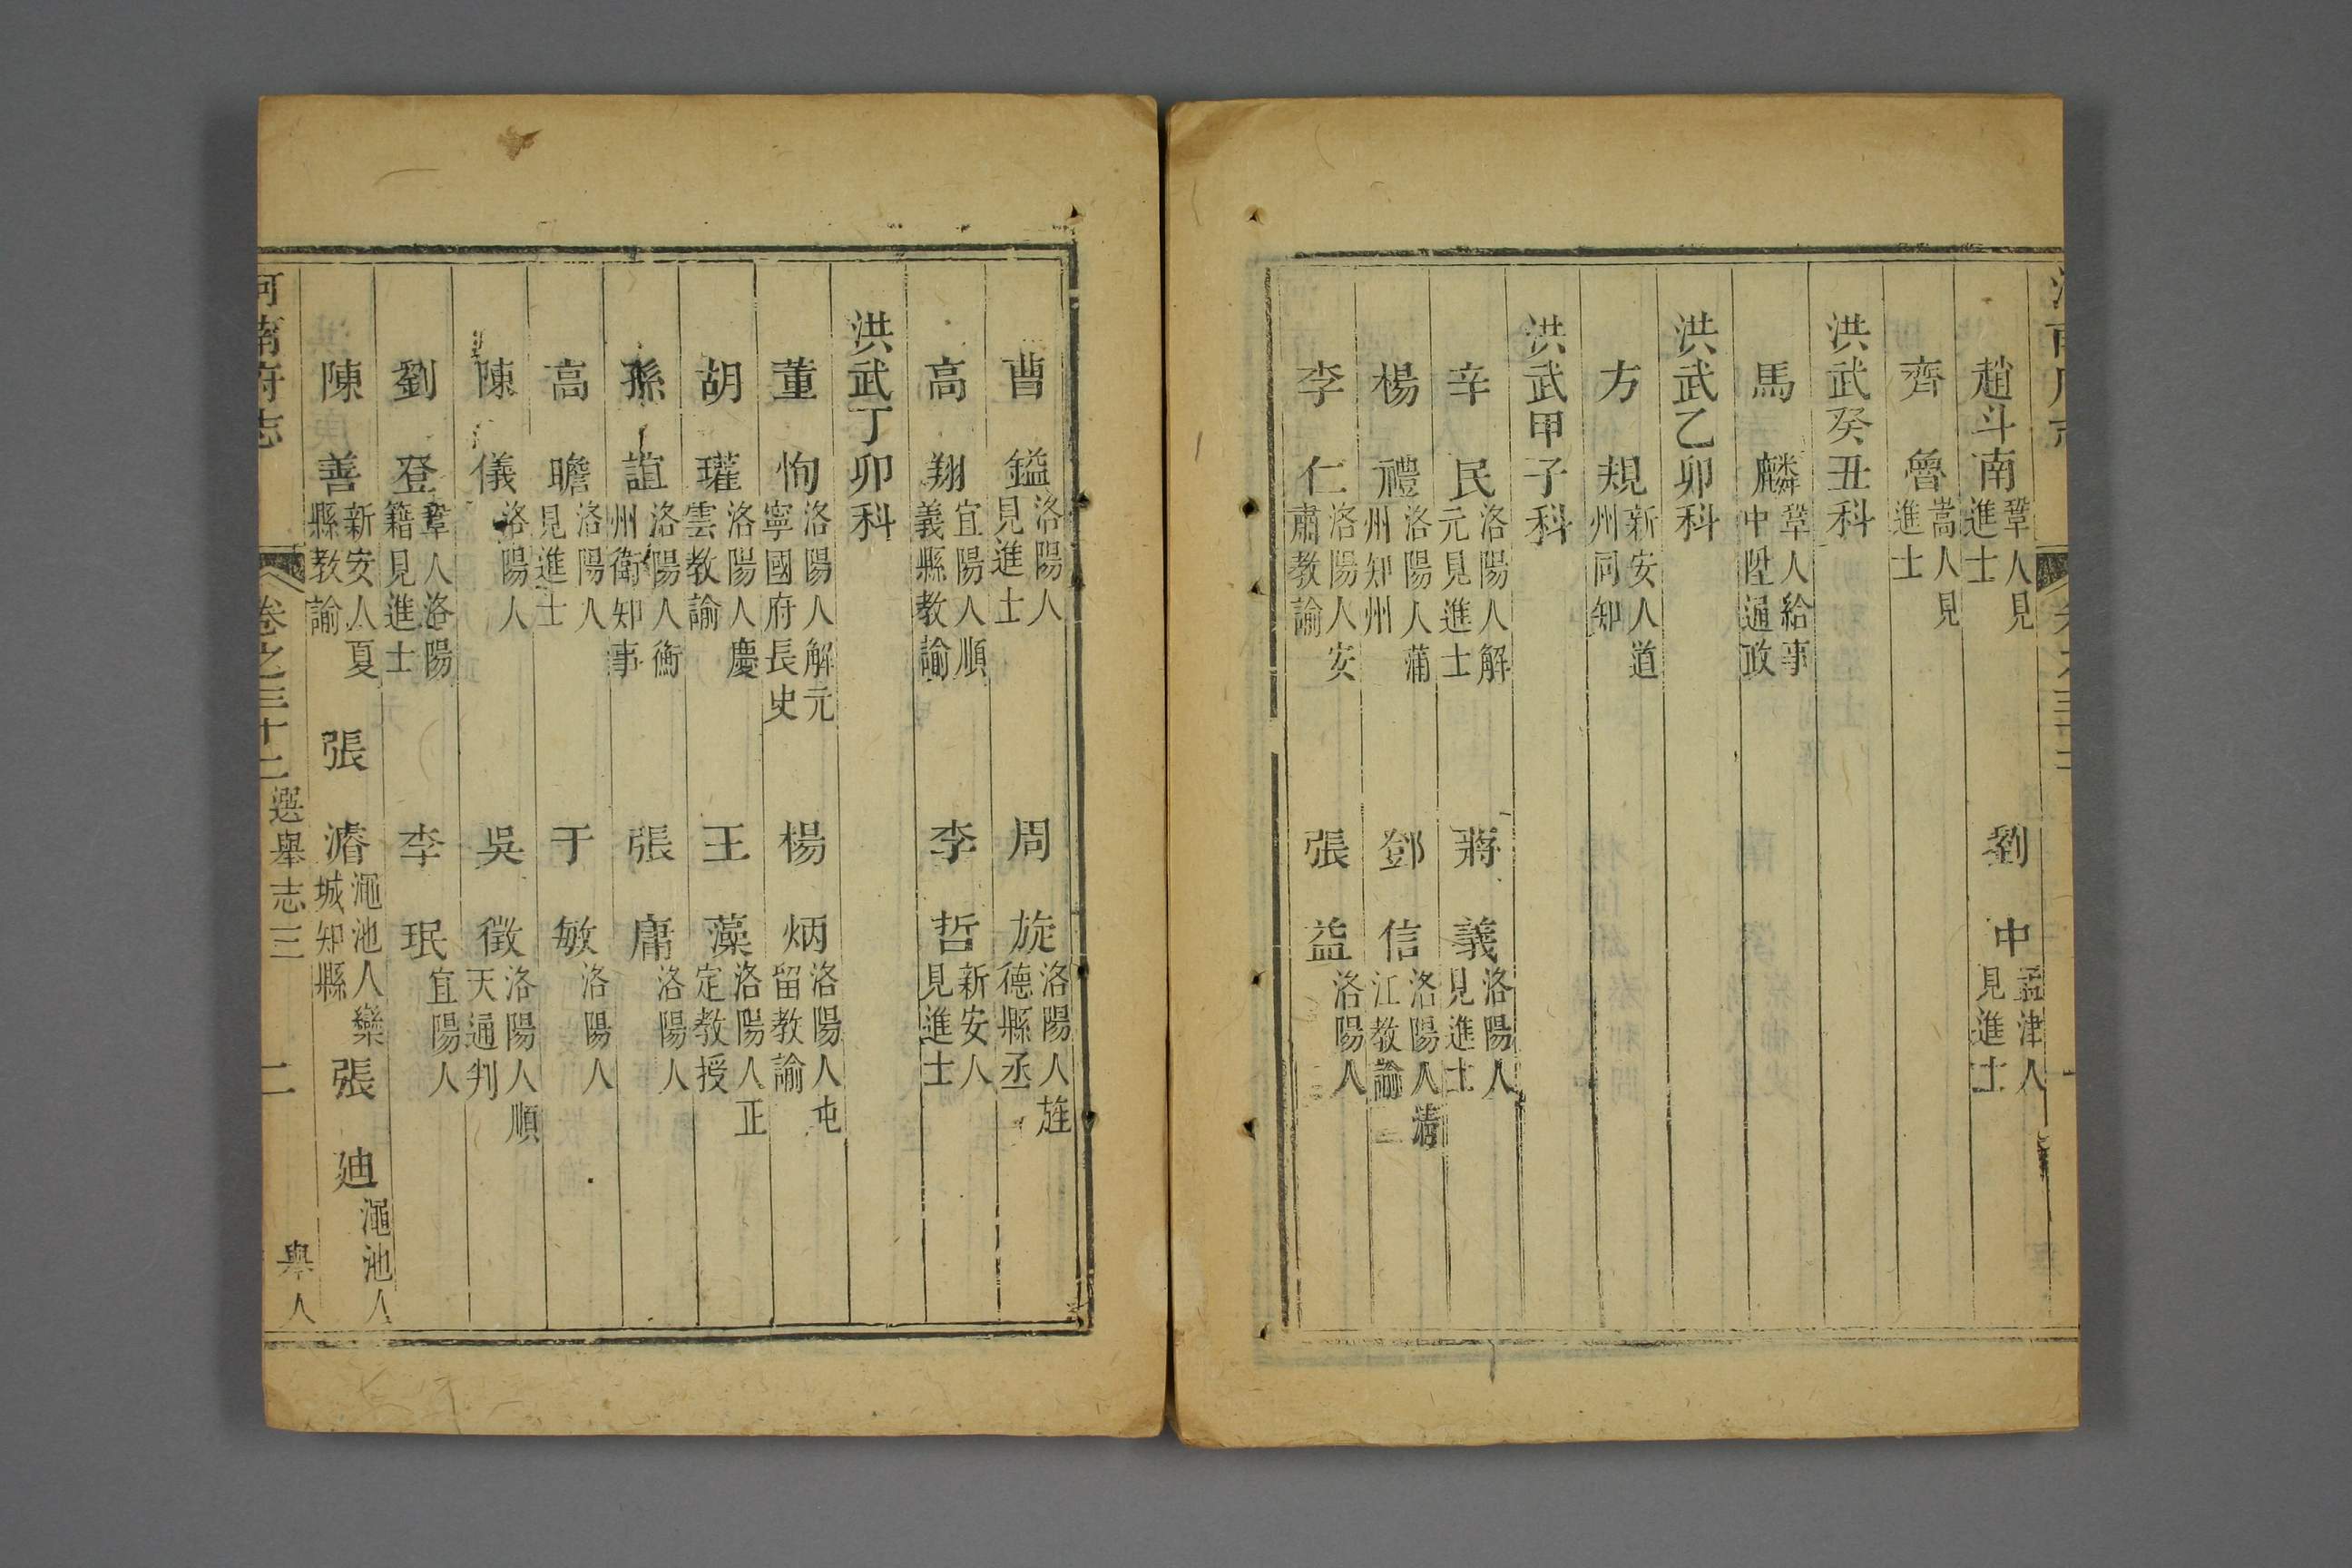 趙斗南 鞏人見進士 劉中 孟津人見進士
齊魯 嵩人見進士
洪武癸丑科
馬麟 鞏人給事中陞通政
洪武乙卯科
方規 新安人道州同知
洪武甲子科
辛民 洛陽人解元見進士 蔣義 洛陽人見進士
楊禮 洛陽人蒲州知州 鄧信 洛陽人清江教諭
李仁 洛陽人安肅教諭 張益 洛陽人
曹鎰 洛陽人見進士 周旋 洛陽人旌德縣丞
高翔 宜陽人順義縣教諭 李哲 新安人見進士
洪武丁卯科
董恂 洛陽人解元寧國府長史 楊炳 洛陽人屯留教諭
胡瓘 洛陽人慶雲教諭 王藻 洛陽人正定教授
孫誼 洛陽人衛州衛知事 張庸 洛陽人
高瞻 洛陽人見進士 于敏 洛陽人
陳儀 洛陽人 吳徵 洛陽人順天通判
劉登 鞏人洛陽籍見進士 李珉 宜陽人
陳善 新安人夏縣教諭 張濬 澠池人欒城知縣 張迪 澠池人
河南府志 卷之三十二 選舉志三 二 舉人